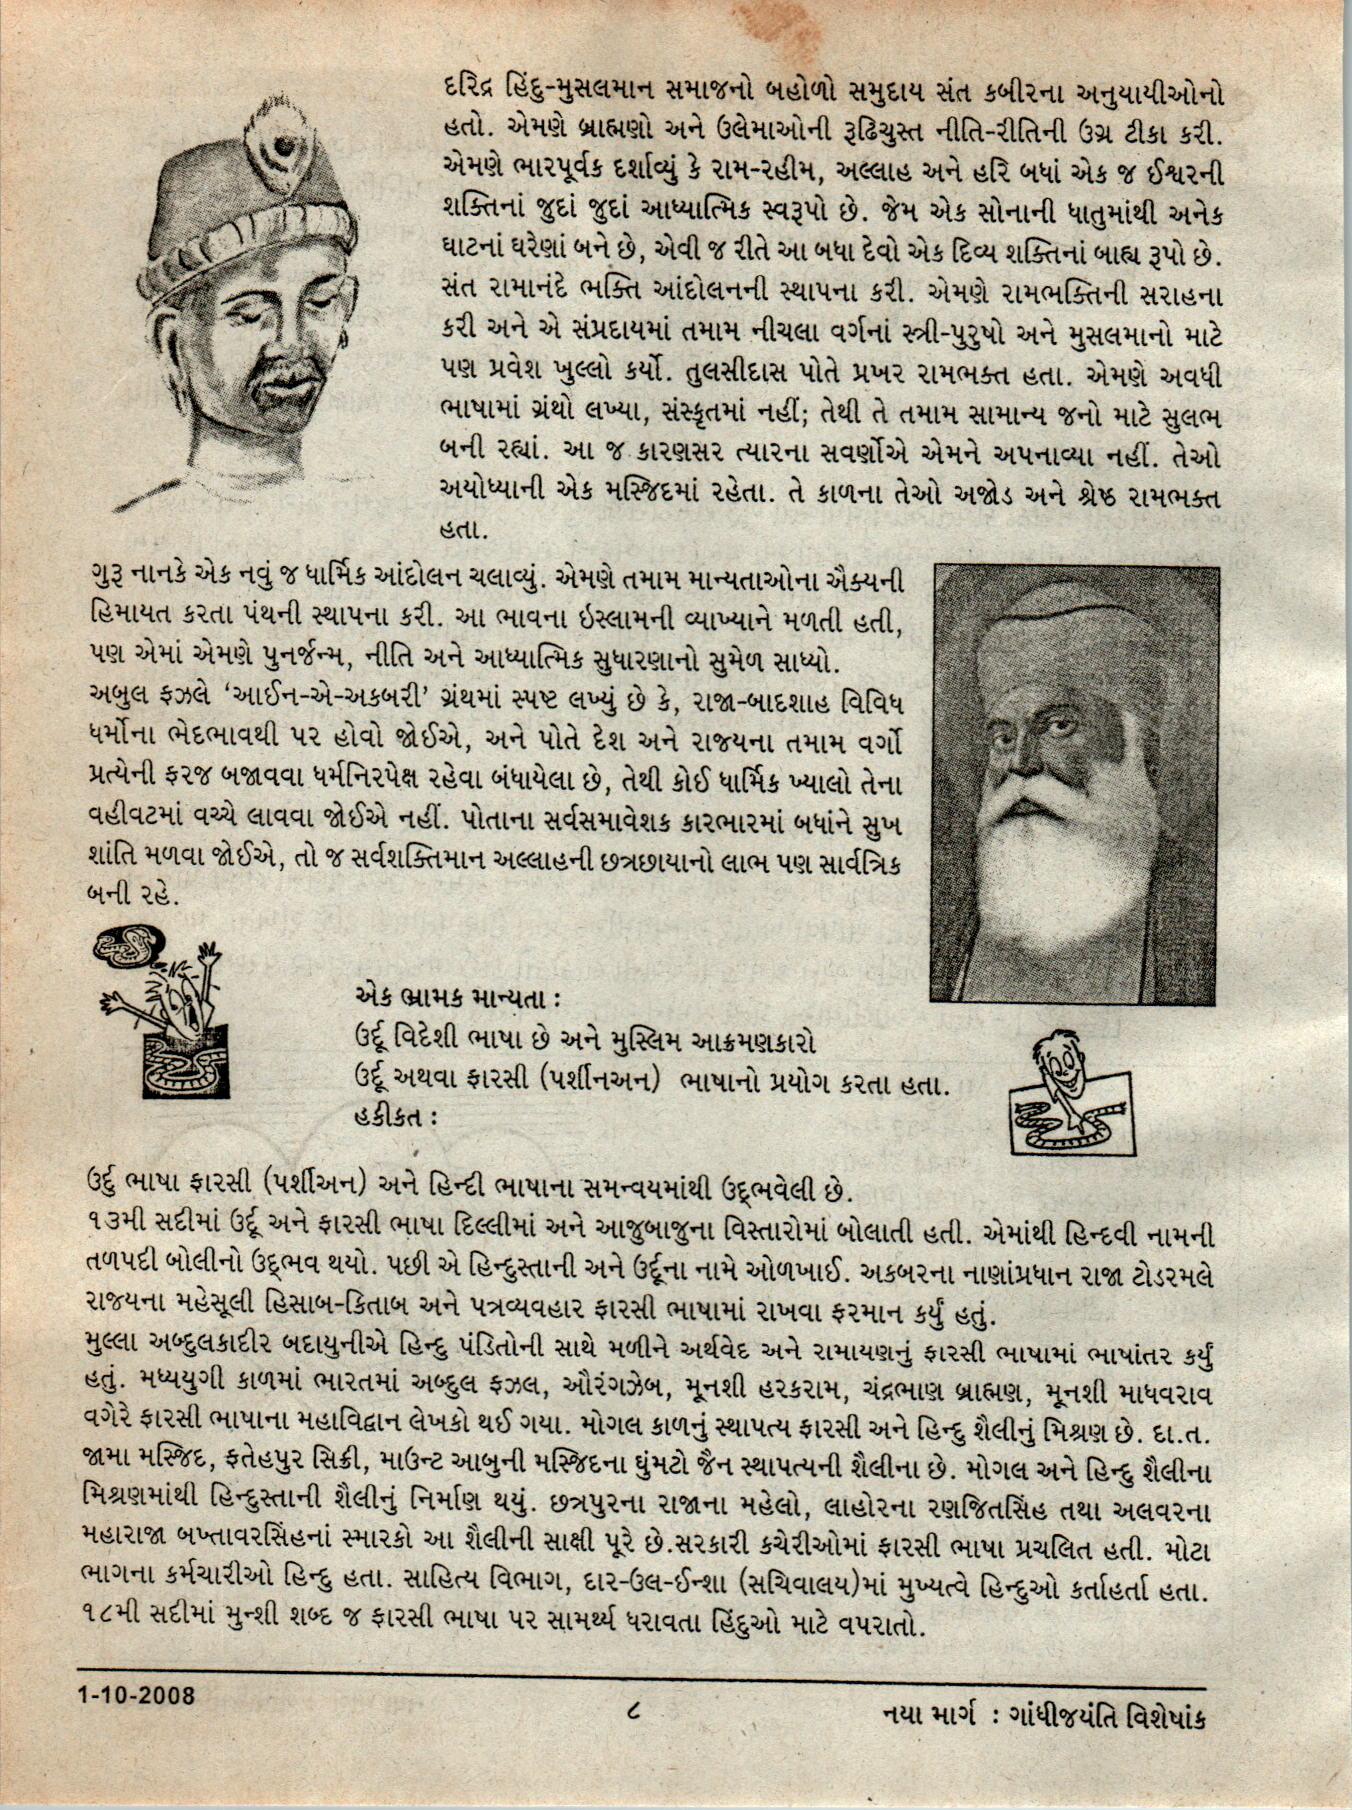 દરિદ્ર હિંદુ-મુસલમાન સમાજનો બહોળો સમુદાય સંત કબીરના અનુયાયીઓનો
હતો. એમણે બ્રાહ્મણો અને ઉલેમાઓની રૂઢિચુસ્ત નીતિ-રીતિની ઉગ્ર ટીકા કરી.
એમણે ભારપૂર્વક દર્શાવ્યું કે રામ-રહીમ, અલ્લાહ અને હરિ બધાં એક જ ઈશ્વરની
શક્તિનાં જુદાં જુદાં આધ્યાત્મિક સ્વરૂપો છે. જેમ એક સોનાની ધાતુમાંથી અનેક
ઘાટનાં ઘરેણાં બને છે, એવી જ રીતે આ બધા દેવો એક દિવ્ય શક્તિનાં બાહ્ય રૂપો છે.
સંત રામાનંદે ભક્તિ આંદોલનની સ્થાપના કરી. એમણે રામભક્તિની સરાહના
કરી અને એ સંપ્રદાયમાં તમામ નીચલા વર્ગનાં સ્ત્રી-પુરુષો અને મુસલમાનો માટે
પણ પ્રવેશ ખુલ્લો કર્યો. તુલસીદાસ પોતે પ્રખર રામભક્ત હતા. એમણે અવધી
ભાષામાં ગ્રંથો લખ્યા, સંસ્કૃતમાં નહીં; તેથી તે તમામ સામાન્ય જનો માટે સુલભ
બની રહ્યાં. આ જ કારણસર ત્યારના સવર્ણોએ એમને અપનાવ્યા નહીં. તેઓ
અયોધ્યાની એક મસ્જિદમાં રહેતા. તે કાળના તેઓ અજોડ અને શ્રેષ્ઠ રામભક્ત
હતા.
ગુરૂ નાનકે એક નવું જ ધાર્મિક આંદોલન ચલાવ્યું. એમણે તમામ માન્યતાઓના ઐક્યની
હિમાયત કરતા પંથની સ્થાપના કરી. આ ભાવના ઇસ્લામની વ્યાખ્યાને મળતી હતી,
પણ એમાં એમણે પુનર્જન્મ, નીતિ અને આધ્યાત્મિક સુધારણાનો સુમેળ સાધ્યો.
અબુલ ફઝલે ‘આઈન-એ-અકબરી’ ગ્રંથમાં સ્પષ્ટ લખ્યું છે કે, રાજા-બાદશાહ વિવિધ
ધર્મોના ભેદભાવથી પર હોવો જોઈએ, અને પોતે દેશ અને રાજયના તમામ વર્ગો
પ્રત્યેની ફરજ બજાવવા ધર્મનિરપેક્ષ રહેવા બંધાયેલા છે, તેથી કોઈ ધાર્મિક ખ્યાલો તેના
વહીવટમાં વચ્ચે લાવવા જોઈએ નહીં. પોતાના સર્વસમાવેશક કારભારમાં બધાંને સુખ
શાંતિ મળવા જોઈએ, તો જ સર્વશક્તિમાન અલ્લાહની છત્રછાયાનો લાભ પણ સાર્વત્રિક
બની રહે.
એક ભ્રામક માન્યતા :
ઉર્દૂ વિદેશી ભાષા છે અને મુસ્લિમ આક્રમણકારો
ઉર્દૂ અથવા ફારસી (પર્શીનઅન) ભાષાનો પ્રયોગ કરતા હતા.
હકીકત :
ઉર્દુ ભાષા ફારસી (પર્શીઅન) અને હિન્દી ભાષાના સમન્વયમાંથી ઉદ્ભવેલી છે.
૧૩મી સદીમાં ઉર્દૂ અને ફારસી ભાષા દિલ્લીમાં અને આજુબાજુના વિસ્તારોમાં બોલાતી હતી. એમાંથી હિન્દવી નામની
તળપદી બોલીનો ઉદ્ભવ થયો. પછી એ હિન્દુસ્તાની અને ઉર્દૂના નામે ઓળખાઈ. અકબરના નાણાંપ્રધાન રાજા ટોડરમલે
રાજયના મહેસૂલી હિસાબ-કિતાબ અને પત્રવ્યવહાર ફારસી ભાષામાં રાખવા ફરમાન કર્યું હતું.
મુલ્લા અબ્દુલકાદીર બદાયુનીએ હિન્દુ પંડિતોની સાથે મળીને અર્થવેદ અને રામાયણનું ફારસી ભાષામાં ભાષાંતર કર્યું
હતું. મધ્યયુગી કાળમાં ભારતમાં અબ્દુલ ફઝલ, ઔરંગઝેબ, મૂનશી હરકરામ, ચંદ્રભાણ બ્રાહ્મણ, મૂનશી માધવરાવ
વગેરે ફારસી ભાષાના મહાવિદ્વાન લેખકો થઈ ગયા. મોગલ કાળનું સ્થાપત્ય ફારસી અને હિન્દુ શૈલીનું મિશ્રણ છે. દા.ત.
જામા મસ્જિદ, ફતેહપુર સિક્રી, માઉન્ટ આબુની મસ્જિદના ઘુંમટો જૈન સ્થાપત્યની શૈલીના છે. મોગલ અને હિન્દુ શૈલીના
મિશ્રણમાંથી હિન્દુસ્તાની શૈલીનું નિર્માણ થયું. છત્રપુરના રાજાના મહેલો, લાહોરના રણજિતસિંહ તથા અલવરના
મહારાજા બખ્તાવરસિંહનાં સ્મારકો આ શૈલીની સાક્ષી પૂરે છે.સરકારી કચેરીઓમાં ફારસી ભાષા પ્રચલિત હતી. મોટા
ભાગના કર્મચારીઓ હિન્દુ હતા. સાહિત્ય વિભાગ, દાર-ઉલ-ઈન્શા (સચિવાલય)માં મુખ્યત્વે હિન્દુઓ કર્તાહર્તા હતા.
૧૮મી સદીમાં મુન્શી શબ્દ જ ફારસી ભાષા પર સામર્થ્ય ધરાવતા હિંદુઓ માટે વપરાતો.
1-10-2008
૮
નયા માર્ગ : ગાંધીજયંતિ વિશેષાંક